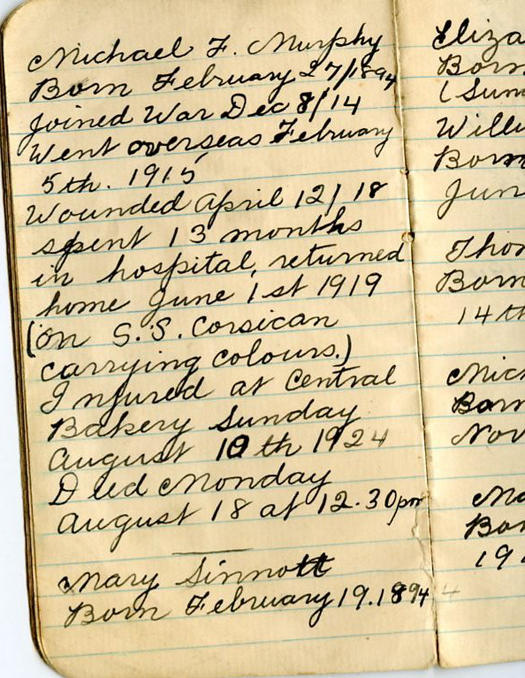 Michael F. Murphy
Born February 27/1894
Joined War Dec 8/14
Went overseas February
5th. 1915
Wounded April 12/18
spent 13 months
in hospital, returned
home June 1st 1919
(on S.S. Corsican
carrying colours.)
Injured at Central
Bakery Sunday
August 10th 1924
Died Monday
August 18 at 12.30pm
Mary Sinnott
Born February 19.1894
Eliza
Born
(Sun
Willi
Born
Jun
Thom
Born
14th
Mich
Born
Nov
Ma
Bo
19